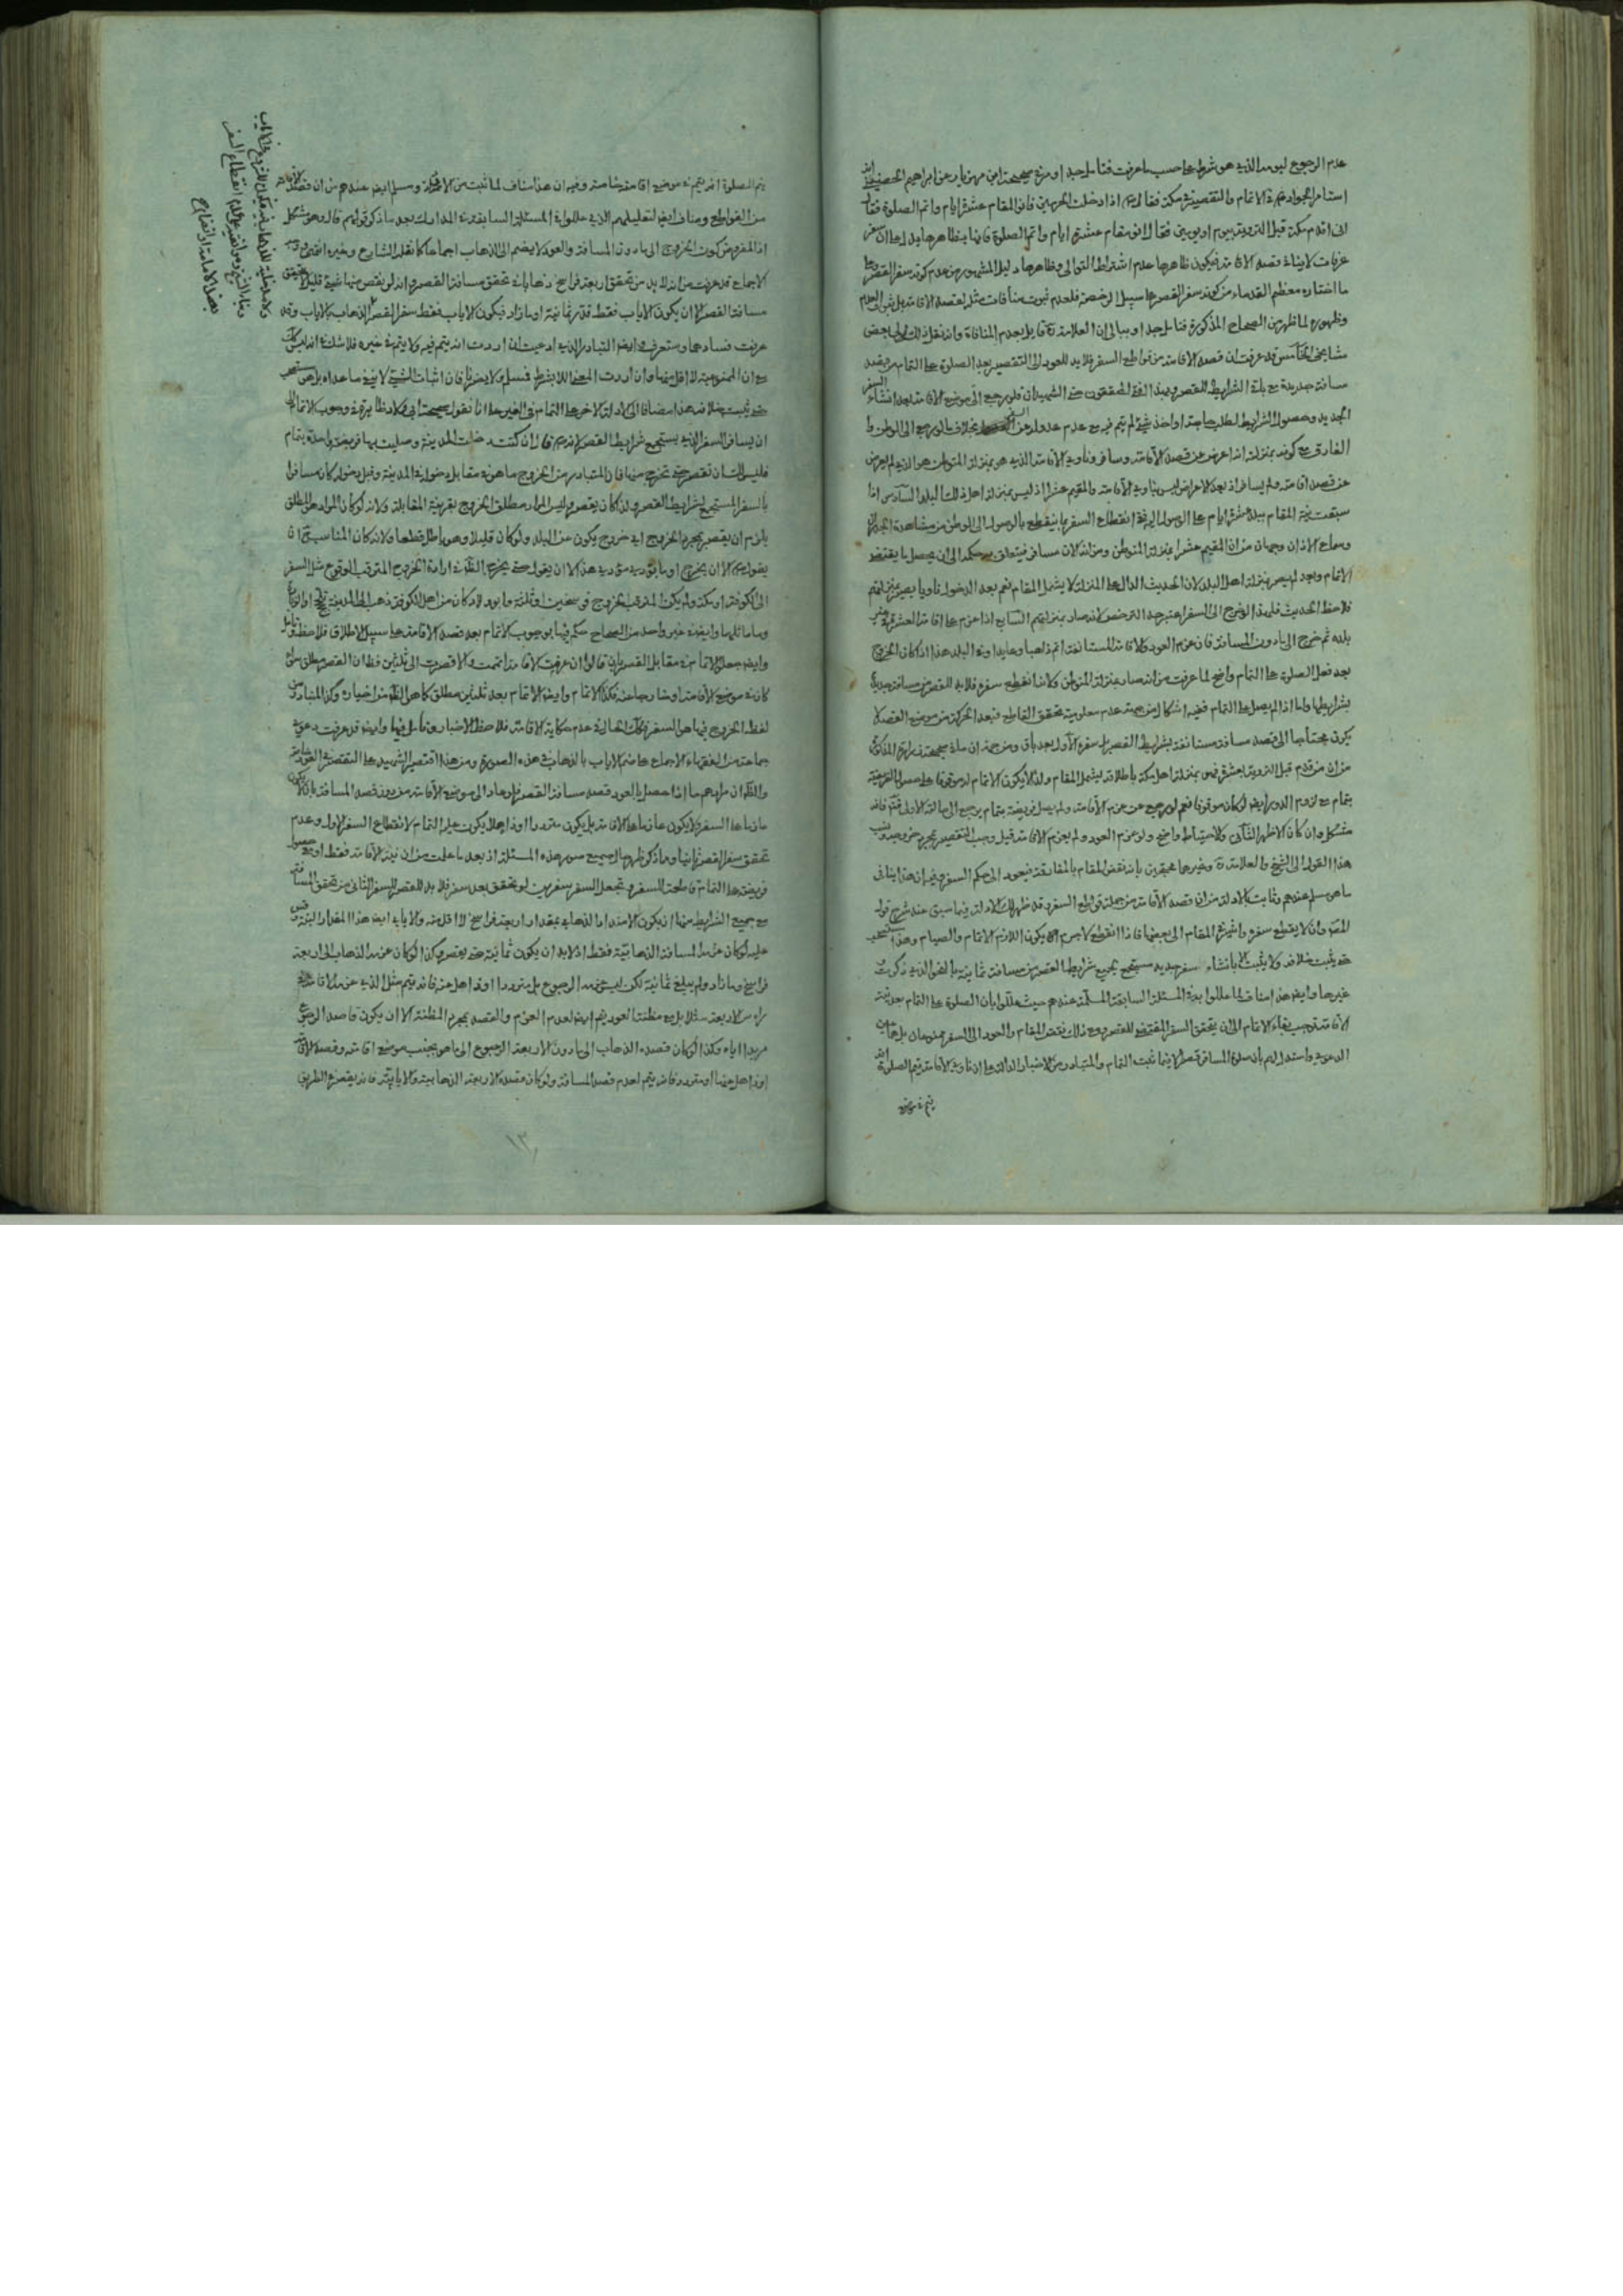 عدم الرجوع ليومه الذي هو شرط على حسب ما عرفت فتأمل جدا وفي صحيحة ابن مهزيار عن ابراهيم الحضيني انه
استأمر الجواد في الاتمام والتقصير في مكة فقال اذا دخلت الحرمين فانو المقام عشرة ايام واتم الصلوة فقال
اني اقدم مكة قبل التروية بيوم او يومين فقال انو مقام عشرة ايام واتم الصلوة فانها بظاهرها يدل على ان سفر
عرفات لا ينافي قصد الاقامة فيكون ظاهرها عدم اشتراط التوالي وظاهرها دليل المشهور من عدم كونه سفر القصر
ما اختاره معظم القدماء من كونه سفر القصر على سبيل الرخصة فلعدم ثبوت منافات مثله لقصد الاقامة بل ثبوت العدم
وظهوره لما ظهر من الصحاح المذكورة فتأمل جدا وببالي ان العلامة قايل بعدم المنافاة وانه نقل ذلك لي بعض
مشايخي الخامس قد عرفت ان قصد الاقامة من قواطع السفر فلا بد للعود الى التقصير بعد الصلوة على التمام من قصد
مسافة جديدة مع باقي الشرايط للقصر وبهذا افتى المحققون حتى الشهيدان فلو رجع الى موضع الاقامة بعد انشاء السفر
الجديد وحصول الشرايط لطلب حاجة او اخذ شيء لم يتم فيه مع عدم عدوله عن السفر بخلاف ما لو رجع الى الوطن وا
الفارق مع كونه بمنزلته انه اعرض عن قصد الاقامة وسافر وناوي الاقامة الذي هو بمنزلة المتوطن هو الذي لم يعرض
عن قصد اقامته ولم يسافر اذ بعد الاعراض ليس بناوي الاقامة والمقيم عشرا اذ ليس بمنزلة اهل ذلك البلد السادس اذا
سبقت نية المقام ببلد عشرة ايام على الوصول اليه ففي انقطاع السفر بما ينقطع بالوصول الى الوطن من مشاهدة الجدران
وسماع الاذان وجهان من ان المقيم عشرا بمنزلة المتوطن ومن انه الان مسافر فيتعلق به حكمه الى ان يحصل ما يقتضي
الاتمام وبعد لم يصر بمنزلة اهل البلد لان الحديث الدال على المنزلة لا يشمل المقام نعم بعد الدخول ناويا يصير بمنزلتهم
فلاحظ الحديث فلو بدا له الخروج الى السفر اعتبر حد الترخص لانه صار بمنزلتهم السابع اذا عزم على اقامة العشرة في غير
بلده ثم خرج الى ما دون المسافة فان عزم العود والاقامة المستانفة اتم ذاهبا وعايدا وفي البلد هذا اذا كان الخروج
بعد فعل الصلوة على التمام واضح لما عرفت من انه صار بمنزلة المتوطن ولانه انقطع سفره فلا بد للقصر من مسافة جديدة
بشرايطها واما اذا لم يصل على التمام ففيه اشكال من جهة عدم معلومية تحقق القاطع فبعد الحركة من موضع القصد لا
يكون محتاجا الى قصد مسافة مستانفة بشرايط القصر بل سفره الاول بعد باق ومن جهة ان ما في صحيحة زرارة المذكورة
من ان من قدم قبل التروية بعشرة فهو بمنزلة اهل مكة باطلاقه يشمل المقام ولذا لا يكون الاتمام له موقوفا على حصول الفريضة
بتمام مع لزوم الدور ايضا لو كان موقوفا نعم لو رجع عن عزم الاقامة ولم يصل فريضة بتمام يرجع الى حالة الاولى فتأمل فانه
مشكل وان كان الاظهر الثاني والاحتياط واضح ولو عزم العود ولم يعزم الاقامة قيل وجب التقصير بمجرد خروجه ونسب
هذا القول الى الشيخ والعلامة وغيرهما محتجين بانه نقض المقام بالمفارقة فيعود الى حكم السفر وفيه ان هذا ينافي
ما هو مسلم عندهم وثابت بالادلة من ان قصد الاقامة من جملة قواطع السفر وقد ظهر لك الادلة فيما سبق عند شرح قول
المصنف وان لا يقطع سفره واشير في المقام الى بعضها فاذا انقطع لا جرم يكون اللازم الاتمام والصيام وهذا يستصحب
حتى يثبت خلافه ولا يثبت الا بانشاء سفر جديد مستجمع بجميع شرايط القصر من مسافة ثمانية بالنحو الذي ذكرت و
غيرها وايضا هذا مناف لما عللوا به في المسئلة السابقة المسلمة عندهم حيث عللوا بان الصلوة على التمام بعد نية
الاقامة توجب بقاء الاتمام الى ان يتحقق السفر المقتضي للقصر ومع ذلك نقض المقام والعود الى السفر ممنوعان بل هما عين
الدعوى واستدل لهم بان صلوة المسافر قصر الا فيما ثبت التمام والمتبادر من الاخبار الدالة على ان ناوي الاقامة يتم الصلوة انه
يتم في موضع
يتم الصلوة انه يتم في موضع اقامته خاصة وفيه ان هذا مناف لما ثبت من الادلة ومسلم ايضا عندهم من ان قصد الاقامة
من القواطع ومناف ايضا لتعليلهم الذي عللوا في المسئلة السابقة وفي المدارك بعد ما ذكر قولهم قال وهو مشكل
اذ المفروض كون الخروج الى ما دون المسافة والعود لا يضم الى الذهاب اجماعا كما نقله الشارح وغيره انتهى
الاجماع قد عرفت من انه لا بد من تحقق اربعة فراسخ ذهابا في تحقق مسافة القصر وانه لو نقص منها شيء قليل
مسافة القصر الا ان يكون الاياب فقط قدر ثمانية او ما زاد فيكون الاياب فقط سفر القصر لا الذهاب والاياب وقد
عرفت فسادهما وستعرف ايضا التبادر الذي ادعيت ان اردت انه يتم فيه ولا يتم في غيره فلا شك في انه ليس كك
مع ان الممنوعية لا اقل منها وان اردت المعنى اللابشرط فمسلم ولا يضرنا فان اثبات الشيء لا ينفي ما عداه بل هو مستصحب
حتى يثبت خلافه هذا مضافا الى الادلة الاخر على التمام في الغير على انا نقول صحيحة ابي ولاد ظاهرة في وجوب الاتمام الى
ان يسافر السفر الذي يستجمع شرايط القصر لانه قال ان كنت دخلت المدينة وصليت بها فريضة واحدة بتمام
فليس لك ان تقصر حتى تخرج منها فان المتبادر من الخروج ما هو في مقابل دخوله في المدينة وقبل دخوله كان مسافرا
بالسفر المستجمع لشرايط القصر ولذا كان يقصر وليس المراد مطلق الخروج بقرينة المقابلة ولانه لو كان المراد هو المطلق
يلزم ان يقصر بمجرد الخروج اي خروج يكون من البلد ولو كان قليلا وهو باطل قطعا ولانه كان المناسب ح ان
يقول الا ان يخرج او ما يؤدي مؤديه هذا لا ان يقول حتى يخرج الظاهر في ارادة الخروج المترقب الوقوع مثل السفر
الى الكوفة او مكة ولم يكن المترقب الخروج فرسخين او ثلثة وابو ولاد كان من اهل الكوفة ذهب الى المدينة
وما ماثلها وايضا في غير واحد من الصحاح حكم فيها بوجوب الاتمام بعد قصد الاقامة على سبيل الاطلاق فلاحظ وتأمل
وايضا جعل الاتمام في مقابل القصر بان قالوا ان عزمت الاقامة اتممت والا قصرت الى ثلثين فظاهر ان القصر مطلق سواء
كان في موضع الاقامة او خارجا عنه فكذا الاتمام وايضا الاتمام بعد ثلثين مطلق كما هو الظاهر من اخباره وكذا المتبادر من
لفظ الخروج فيها هو السفر وكذلك الحال في عدم حكاية الاقامة فلاحظ الاخبار وتأمل فيها وايضا قد عرفت دعوى
جماعة من الفقهاء الاجماع على ضم الاياب بالذهاب في هذه الصورة ومن هذا اقتصر الشهيد على التقصير في العود خاصة
والظاهر ان مرادهم ما اذا حصل بالعود قصد مسافة القصر فلو عاد الى موضع الاقامة من دون قصد المسافة بان لا يكون
عازما على السفر ولا يكون عازما على الاقامة بل يكون مترددا او ذاهلا يكون عليه التمام لانقطاع السفر الاول وعدم
تحقق سفر القصر ثانيا وما ذكر ظهر حال جميع صور هذه المسئلة اذ بعد ما علمت من ان نية الاقامة فقط او مع حصول
فريضة على التمام قاطعة للسفر وتجعل السفر سفرين لو تحقق بعد سفر فلا بد للقصر للسفر الثاني من تحقق المسافة
مع جميع الشرايط منها ان يكون الامتداد الذهابي بمقدار اربعة فراسخ لا اقل منه والايابي ايضا هذا المقدار البتة
عليه لو كان عزمه المسافة الذهابية فقط اذ لا بد ان يكون ثمانية حتى يقصر وكذا لو كان عزمه الذهاب الى اربعة
فراسخ وما زاد ولم يبلغ ثمانية لكن ليس عزمه الرجوع بل مترددا او ذاهل عنه فانه يتم مثل الذي عزمه الاقامة على
راس الاربعة مثلا بل مع مظنة العود يتم ايضا لعدم العزم والقصد بمجرد المظنة الا ان يكون قاصد الرجوع
مريدا اياه وكذا لو كان قصده الذهاب الى ما دون الاربعة الرجوع الى ما هو بجنب موضع اقامته وقصده الاقامة
او ذاهل عنها او متردد فانه يتم لعدم قصد المسافة ولو كان مقصده الاربعة الذهابية والايابية فانه يقصر في الطريق
١٣